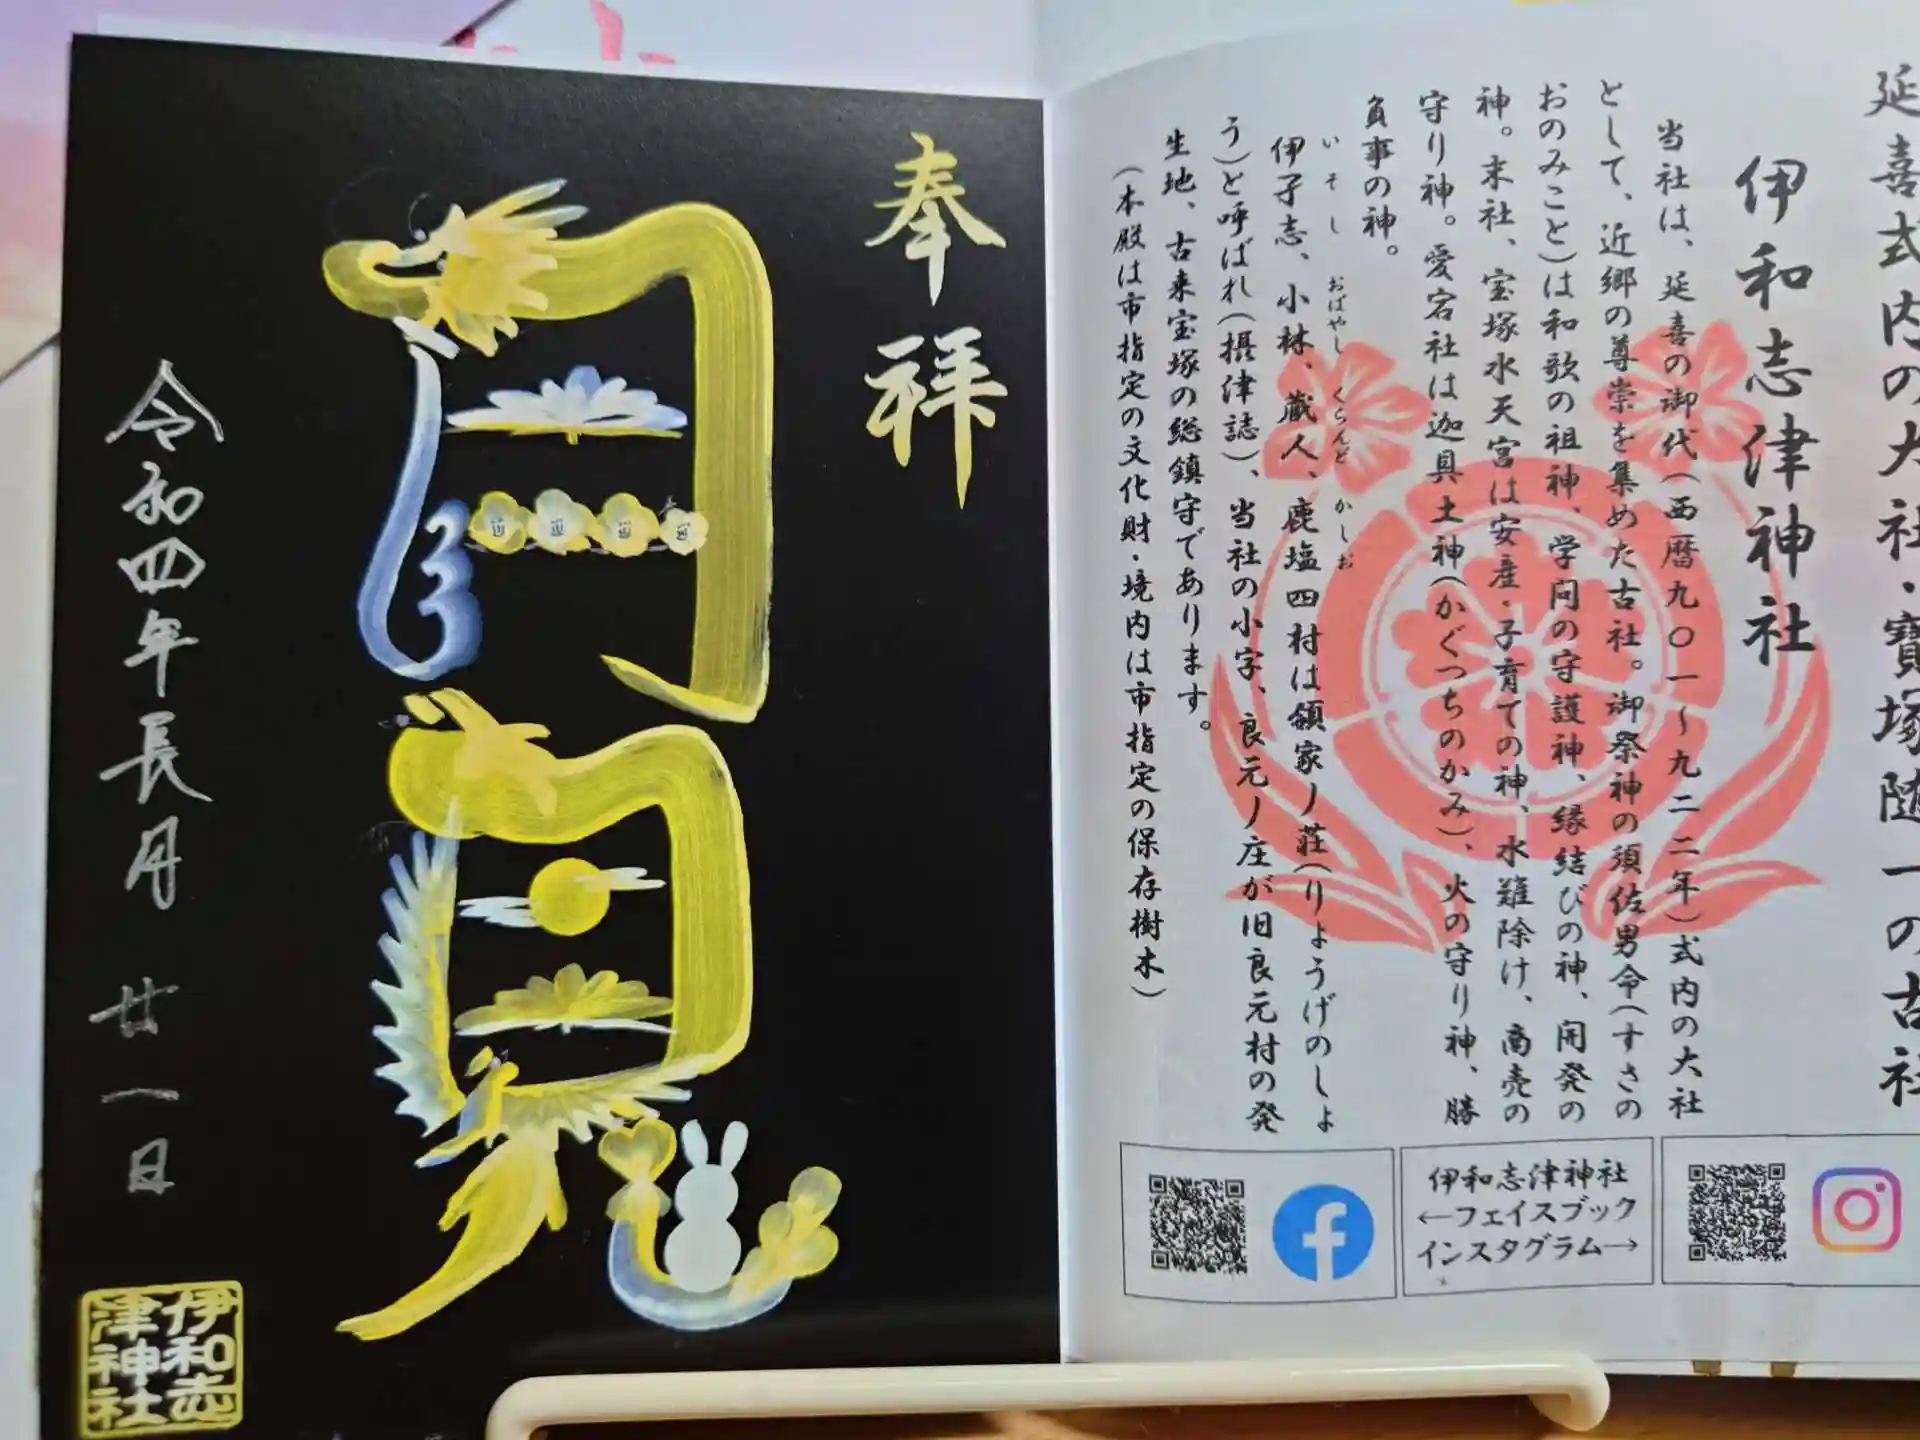 奉拝
月見
令和四年長月 廿一日
伊和志津神社
延喜式内の大社・寶塚随一の古社
伊和志津神社
当社は、延喜の御代(西暦九〇一〜九二二年)式内の大社
として、近郷の尊崇を集めた古社。御祭神の須佐男命(すさの
おのみこと)は和歌の祖神、学問の守護神、縁結びの神、開発の
神。末社、宝塚水天宮は安産・子育ての神、水難除け、商売の
守り神。愛宕社は迦具土神(かぐつちのかみ)、火の守り神、勝
負事の神。
いそし おばやし くらんど かしお
伊孑志、小林、蔵人、鹿塩四村は領家ノ荘(りょうげのしょ
う)と呼ばれ(摂津誌)、当社の小字、良元ノ庄が旧良元村の発
生地、古来宝塚の総鎮守であります。
(本殿は市指定の文化財・境内は市指定の保存樹木)
伊和志津神社
←フェイスブック
インスタグラム→